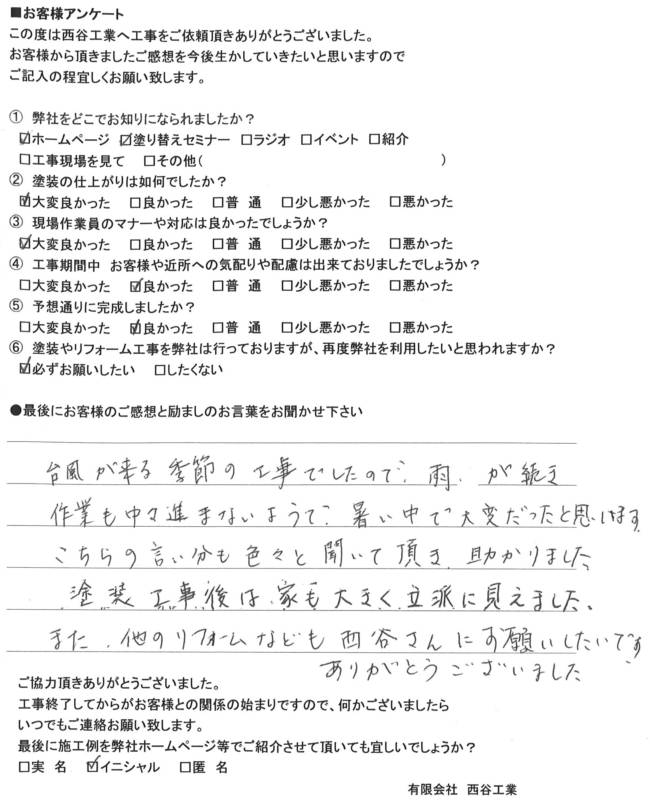 ■お客様アンケート
この度は西谷工業へ工事をご依頼頂きありがとうございました。
お客様から頂きましたご感想を今後生かしていきたいと思いますので
ご記入の程宜しくお願い致します。
① 弊社をどこでお知りになられましたか?
☑ホームページ ☑塗り替えセミナー □ラジオ □イベント □紹介
□工事現場を見て □その他( )
② 塗装の仕上がりは如何でしたか?
☑大変良かった □良かった □普 通 □少し悪かった □悪かった
③ 現場作業員のマナーや対応は良かったでしょうか?
☑大変良かった □良かった □普 通 □少し悪かった □悪かった
④ 工事期間中 お客様や近所への気配りや配慮は出来ておりましたでしょうか?
□大変良かった ☑良かった □普 通 □少し悪かった □悪かった
⑤ 予想通りに完成しましたか?
□大変良かった ☑良かった □普 通 □少し悪かった □悪かった
⑥ 塗装やリフォーム工事を弊社は行っておりますが、再度弊社を利用したいと思われますか?
☑必ずお願いしたい □したくない
●最後にお客様のご感想と励ましのお言葉をお聞かせ下さい
台風が来る季節の工事でしたので、雨、が続き
作業も中々進まないようで、暑い中で大変だったと思います。
こちらの言い分も色々と聞いて頂き、助かりました
塗装工事後は、家も大きく立派に見えました。
また、他のリフォームなども西谷さんにお願いしたいです。
ありがとうございました
ご協力頂きありがとうございました。
工事終了してからがお客様との関係の始まりですので、何かございましたら
いつでもご連絡お願い致します。
最後に施工例を弊社ホームページ等でご紹介させて頂いても宜しいでしょうか?
□実 名 ☑イニシャル □匿 名
有限会社 西谷工業